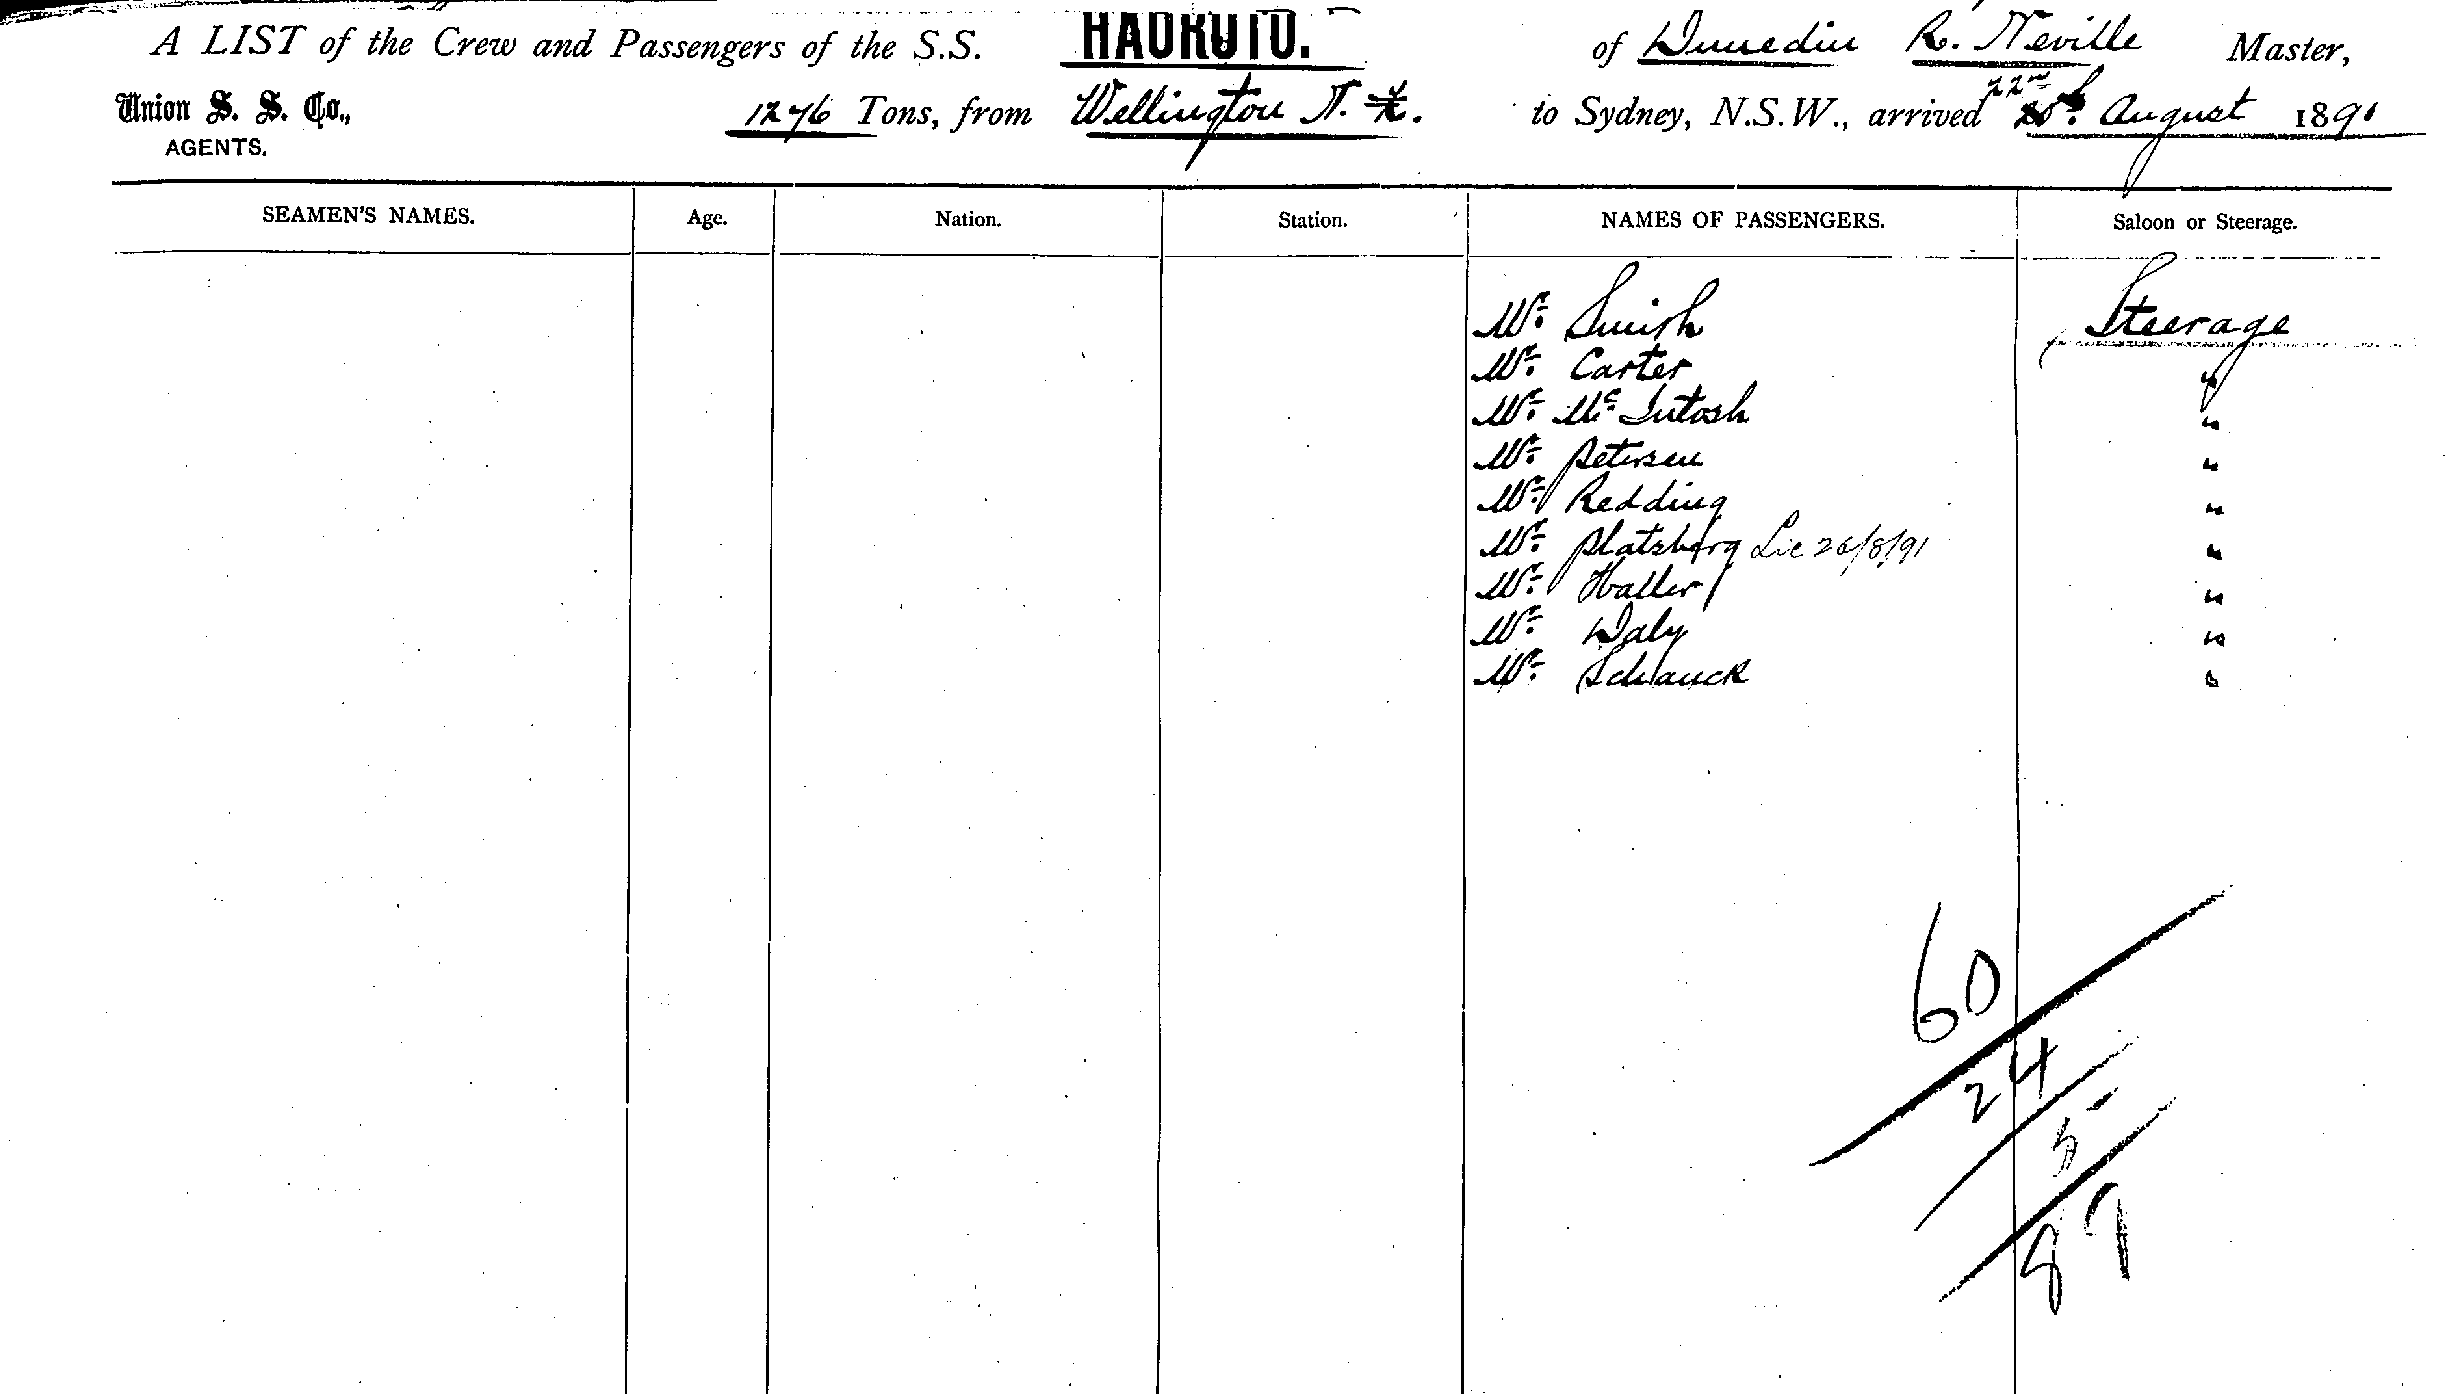 A LIST of the Crew and Passengers of the S.S. HAUROTO. of Dunedin R. Neville Master,
22nd
Union S. S. Co., 1276 Tons, from Wellington N. Z. to Sydney, N.S.W., arrived August 1891
AGENTS.
SEAMEN'S NAMES. Age. Nation. Station. NAMES OF PASSENGERS. Saloon or Steerage.
Mr. Smith Steerage
Mr. Carter "
Mr. Mc. Intosh "
Mr. Petersen "
Mr. Redding "
Mr. Platzberg Lic 26/8/91 "
Mr. Haller "
Mr. Daly "
Mr. Schauck "
60
24
5
89